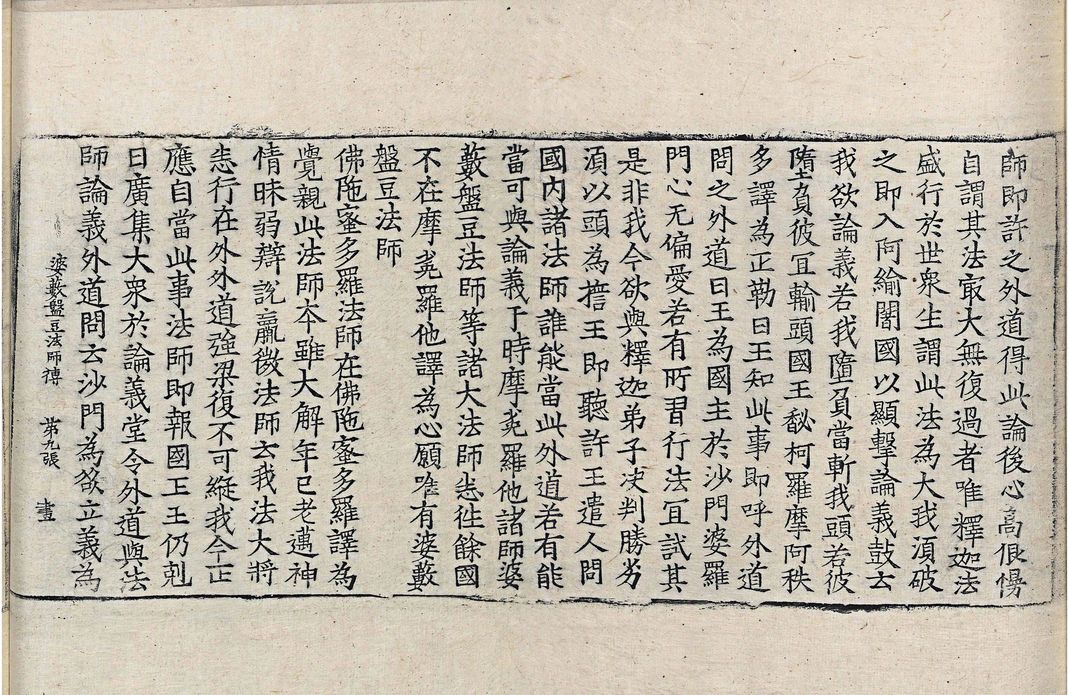 師即許之外道得此論後心高佷慢
自謂其法㝡大無復過者唯釋迦法
盛行於世衆生謂此法為大我湏破
之即入阿緰闍國以顯擊論義鼓云
我欲論義若我墮負當斬我頭若彼
墮負彼冝輸頭國王馝柯羅摩阿秩
多譯為正勒日王知此事即呼外道
問之外道曰王為國主於沙門婆羅
門心无偏愛若有所習行法冝試其
是非我今欲與釋迦弟子决判勝劣
湏以頭為擔王即聽許王遣人問
國内諸法師誰能當此外道若有能
當可與論義于時摩㝹羅他諸師婆
藪盤豆法師等諸大法師悉往餘國
不在摩㝹羅他譯為心願唯有婆藪
盤豆法師
佛陁蜜多羅法師在佛陁蜜多羅譯為
覺親此法師本雖大解年已老邁神
情昧弱辯說羸微法師云我法大將
悉行在外外道強梁復不可縱我今正
應自當此事法師即報國王王仍剋
日廣集大衆於論義堂令外道與法
師論義外道問云沙門為欲立義為
婆藪盤豆法師傳 第九張 畫